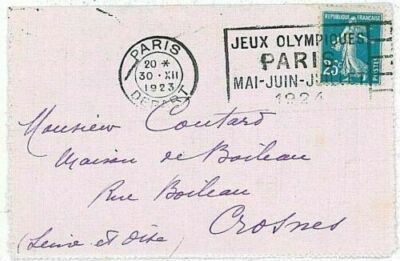 PARIS
20 *
30 - XII
1923
DEPART
JEUX OLYMPIQUES
PARIS
MAI-JUIN-JUI
1924
REPUBLIQUE FRANÇAISE
25c
POSTES
Monsieur Coutard
Maison de Boileau
Rue Boileau
Crosnes
(Seine et Oise)